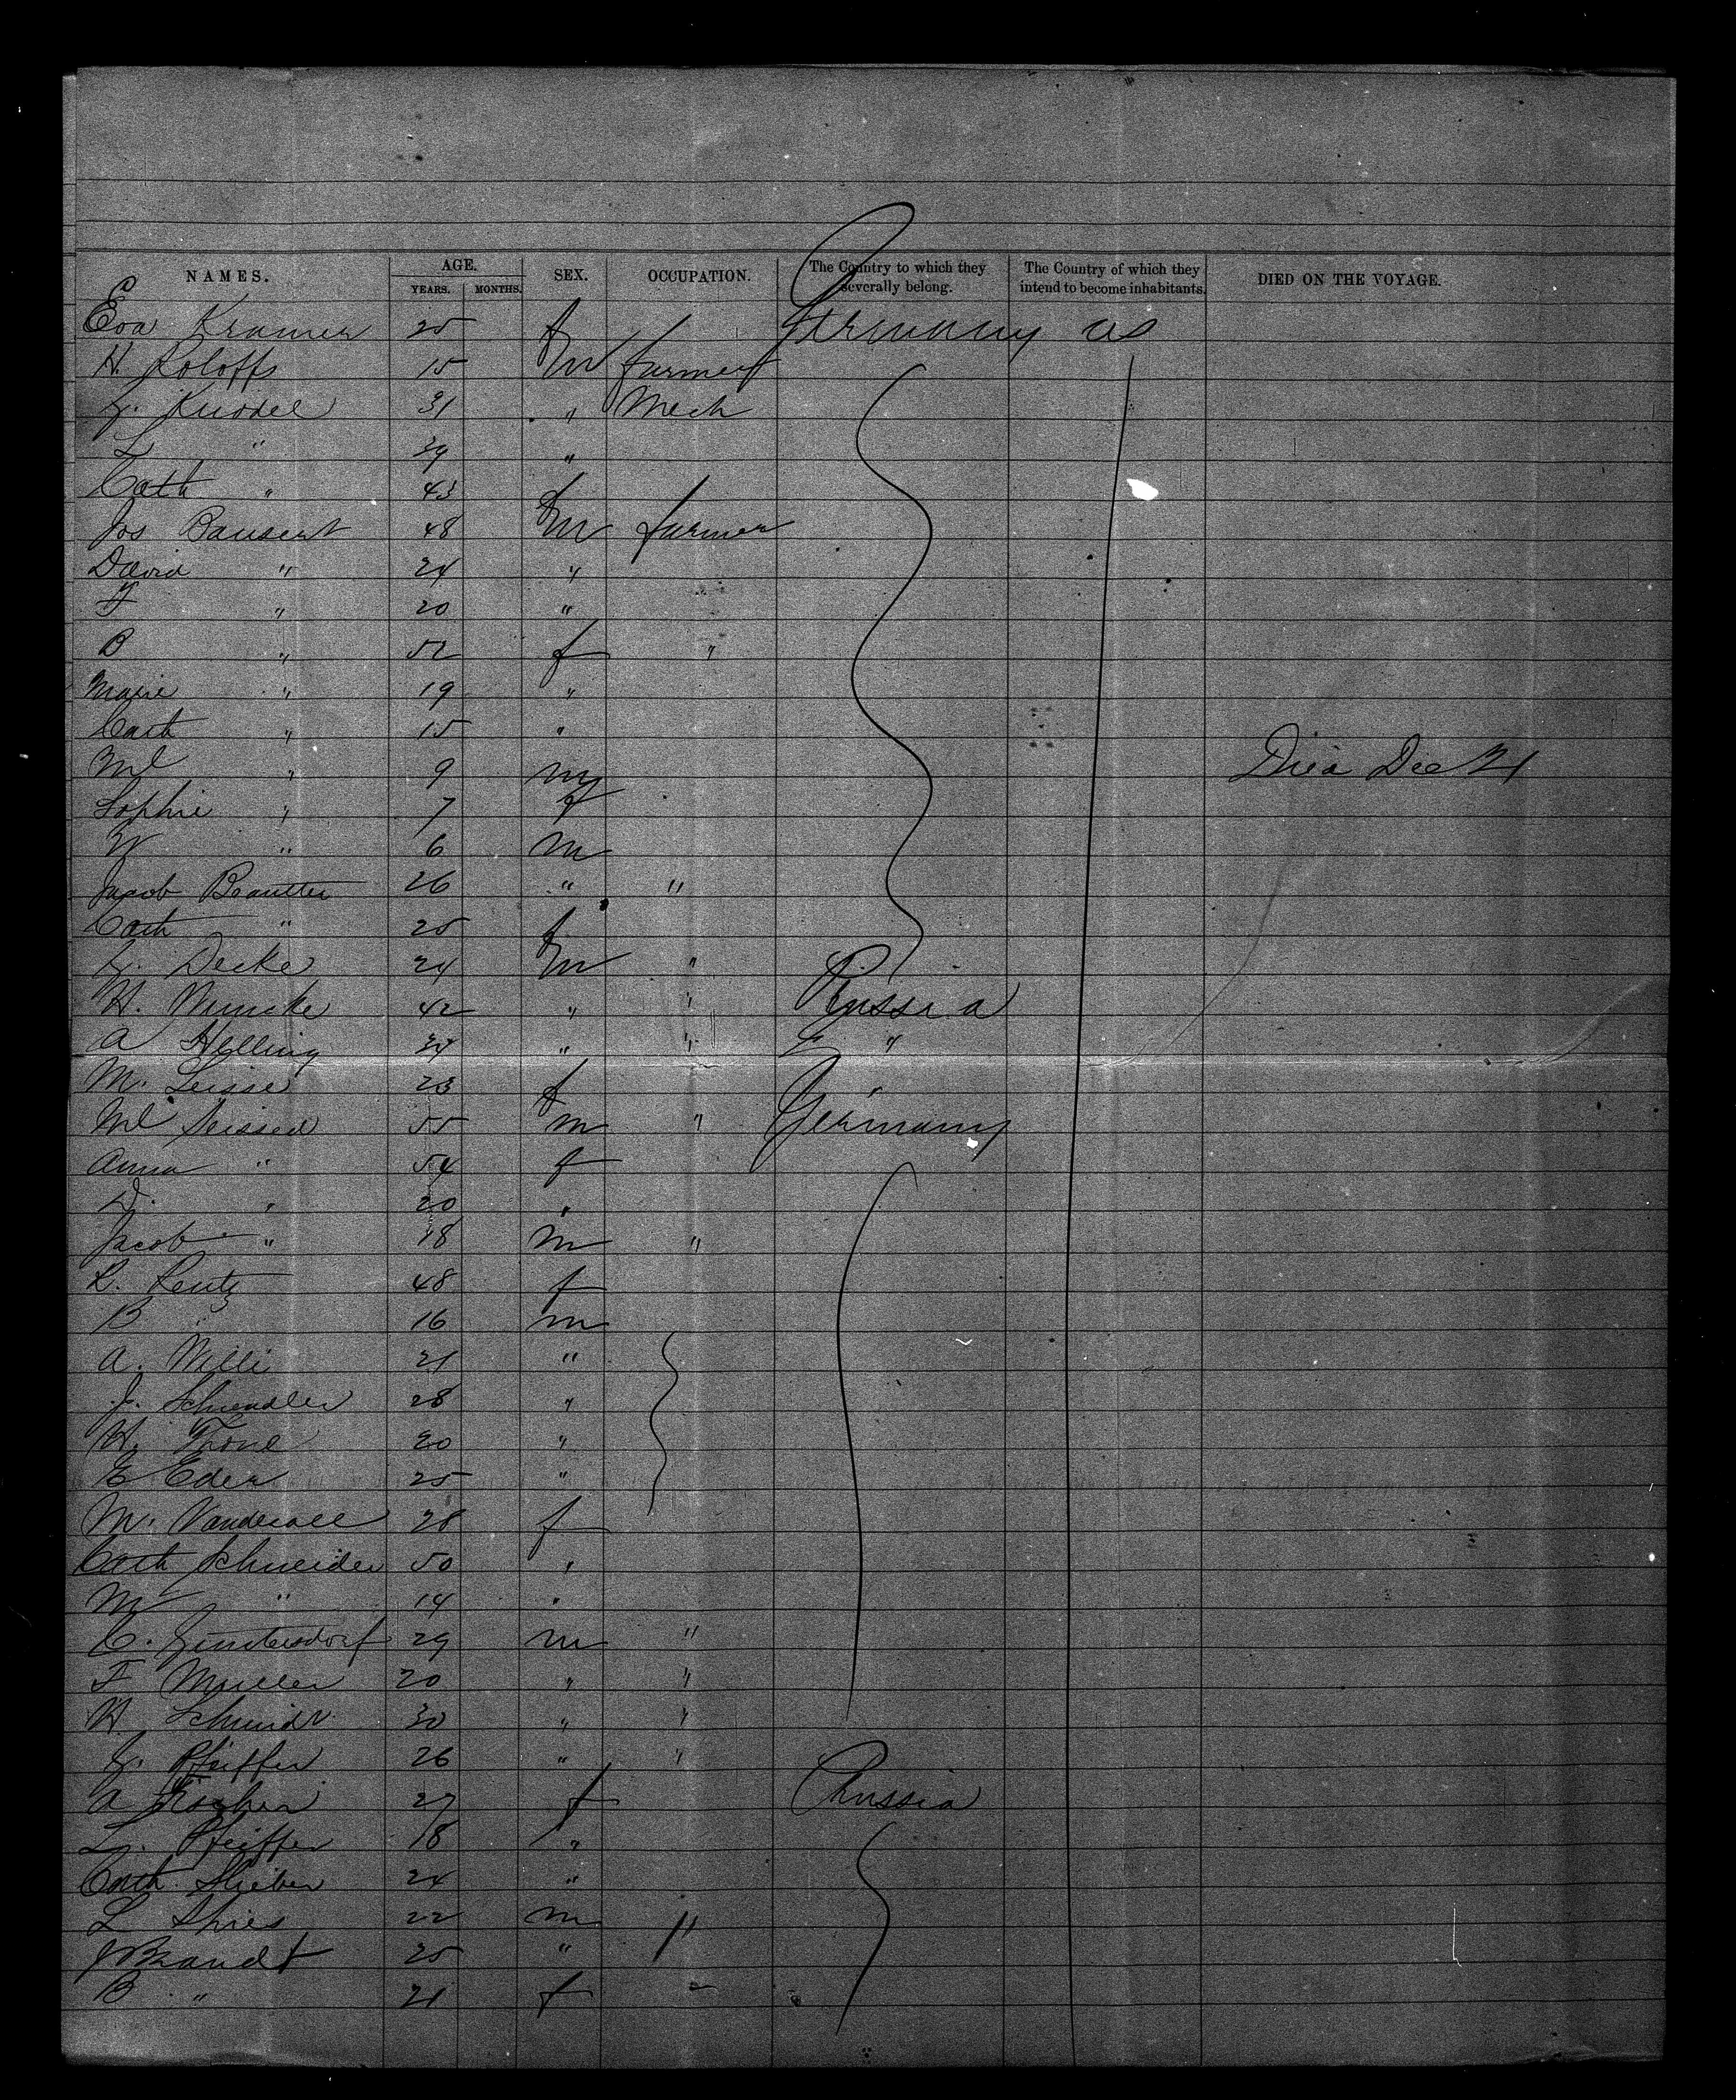 NAMES. AGE. SEX. OCCUPATION. The Country to which they severally belong. The Country of which they intend to become inhabitants. DIED ON THE VOYAGE.
YEARS. MONTHS.
Eva Kramer 25 f Germany us
H. Roloff 15 m farmer
G. Knodel 31 " Mech
L " 39 "
Cath " 43 f
Jos Bausert 48 m farmer
David " 24 "
F " 20 "
B " 52 f "
Marie " 19 "
Cath " 15 "
Ml " 9 m Died Dec 21
Sophie " 7 f
W " 6 m
Jacob 26 " "
Cath " 25 f
G. Decke 24 m "
H. 42 " " Russia
A Helling 34 " " "
M. 23 f
Ml 55 m " Germany
Anna " 54 f
D. " 20 "
Jacob " 18 m "
R. Rentz 48 f
B " 16 m
A. Willi 21 "
J. 28 "
H. 20 "
E Eder 25 "
M. 28 f
Cath Schneider 50 "
M " 14 "
C. Guntersdorf 29 m "
F Muller 20 " "
H Schmidt 30 " "
G. Pfeiffer 26 " "
A Fischer 27 f Russia
L. Pfeiffer 18 "
Cath. Stieber 24 "
L Spies 22 m "
J Brandt 25 "
B " 21 f